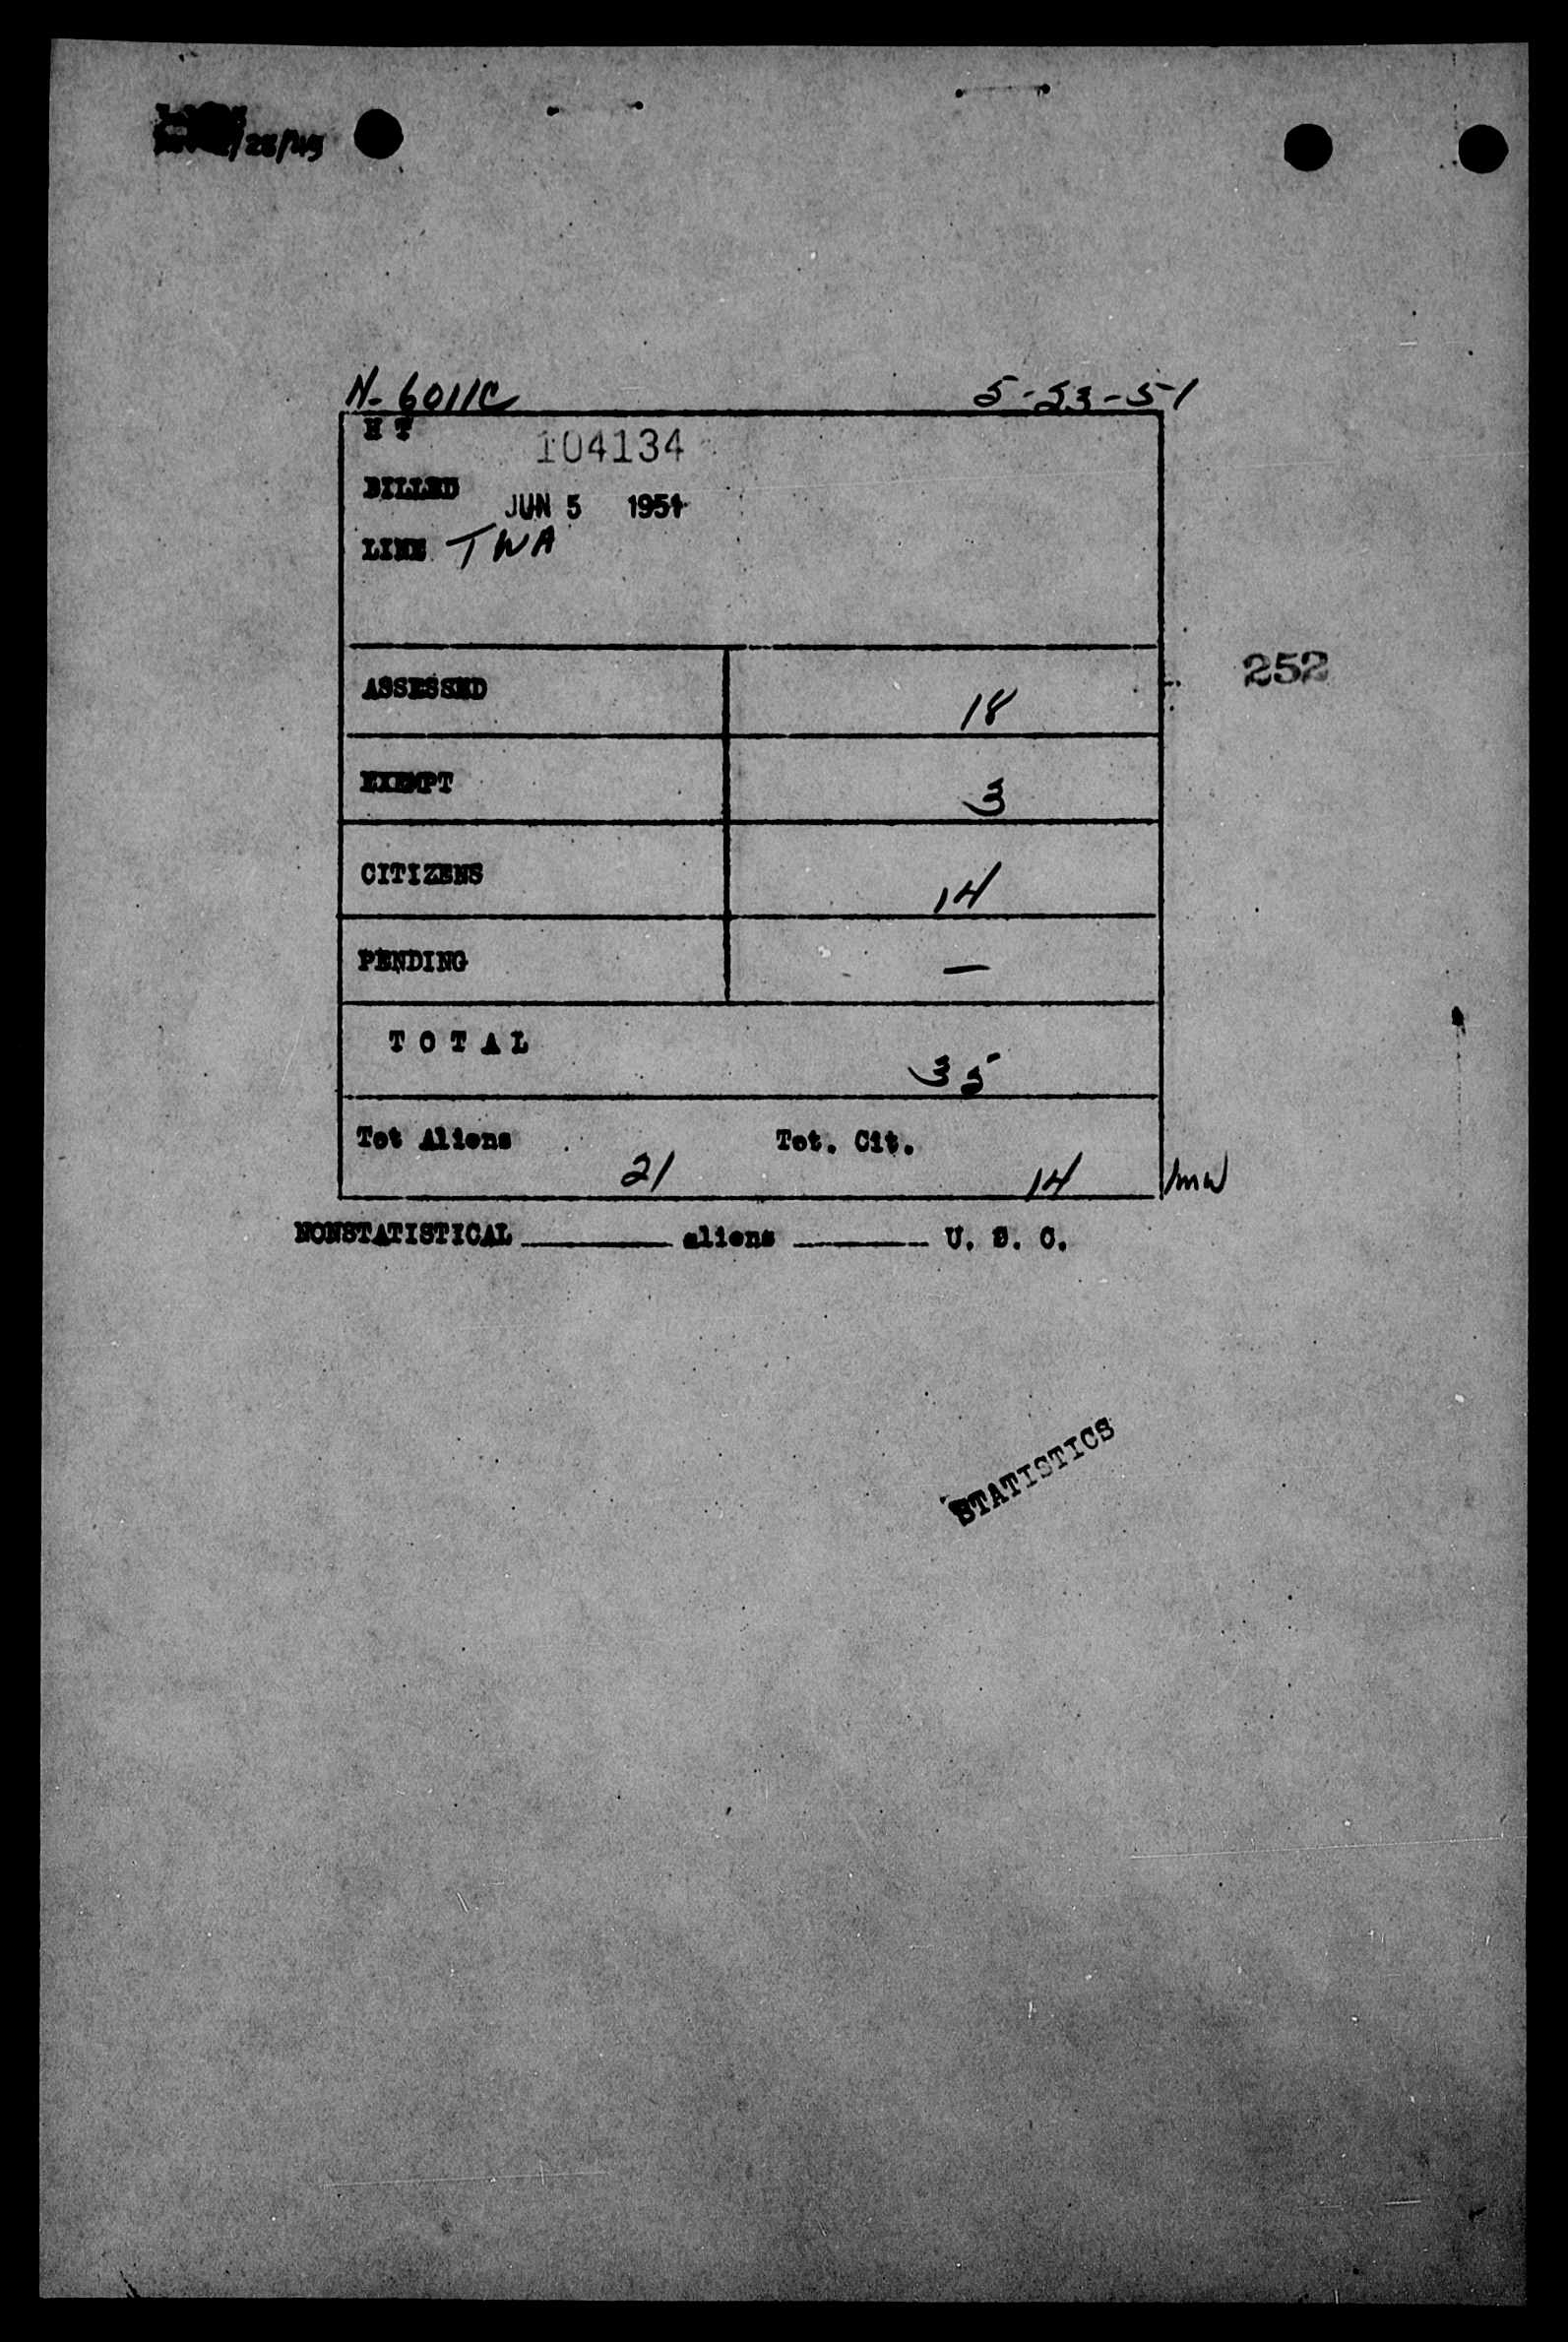 /28/49
N-6011C 5-23-51
H T 104134
BILLED JUN 5 1951
LINE TWA
252
ASSESSED 18
EXEMPT 3
CITIZENS 14
PENDING —
TOTAL 35
Tot Aliens 21 Tot. Cit. 14 /mw
NONSTATISTICAL ______ aliens ______ U. S. C.
STATISTICS